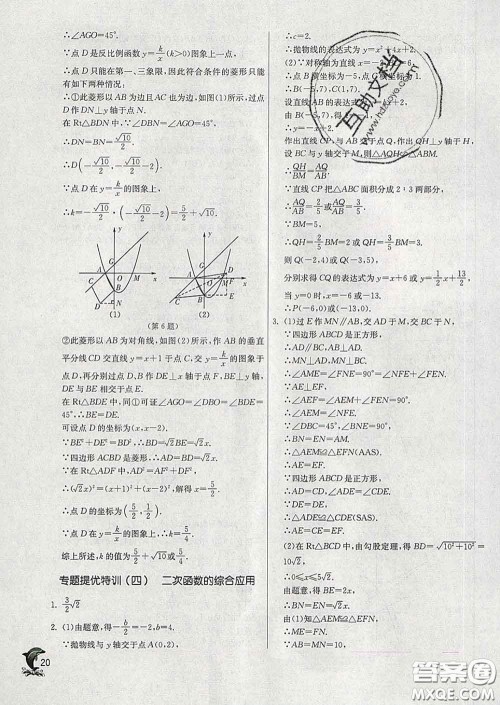 ∴∠AGO=45°.
∵点D是反比例函数y=k/x(k>0)图象上一点,
∴点D只能在第一、三象限,因此符合条件的菱形只能
有如下两种情况:
①此菱形以AB为边且AC也为边,如图(1)所示,过点
D作DN⊥y轴于点N.
在Rt△BDN中,∵∠DBN=∠AGO=45°,
∴DN=BN=√10/2.
∴D(-√10/2,-√10/2-2).
∵点D在y=k/x的图象上,
∴k=-√10/2×(-√10/2-2)=5/2+√10.
(1)
(2)
(第6题)
②此菱形以AB为对角线,如图(2)所示,作AB的垂直
平分线CD交直线y=x+1于点C,交y=k/x的图象于
点D,再分别过点D、B作DE⊥x轴于点F,BE⊥y轴
与DE相交于点E.
在Rt△BDE中,同①可证∠AGO=∠DBO=∠BDE=
45°,∴BE=DE.
可设点D的坐标为(x,x-2).
∵BE²+DE²=BD²,∴BD=√2BE=√2x.
∵四边形ACBD是菱形,∴AD=BD=√2x.
∴(√2x)²=(x+1)²+(x-2)²,解得x=5/2.
∴点D的坐标为(5/2,1/2).
∵点D在y=k/x的图象上,∴k=5/4.
综上所述,k的值为5/2+√10或5/4.
专题提优特训(四) 二次函数的综合应用
1. 3/2√2
2. (1)由题意,得-b/2=-2,b=4.
∵抛物线与y轴交于点A(0,2),
20
∴c=2.
∴抛物线的表达式为y=x²+4x+2.
(2)∵对称轴为直线x=-
∴点B
∴B(-5,7),C(1,7).
设直线AB的表达式为
由B(-5,7),得
∴y=-x+2.
作出直线CP与AB交于点Q,作QH⊥y轴于点H,
设BC与y轴交于M,则△AQH∽△ABM.
∴QH/BM=AQ/AB.
∵直线CP把△ABC面积分成2:3两部分,
∴AQ/AB=2/5或AQ/AB=3/5.
∴QH=2/5BM=2或QH=3/5BM=3.
则Q(-2,4)或Q(-3,5).
分别求得CQ的表达式为y=x+6或y=1/2x+13/2,
当y=0时,x=-6或x=-13.
∴P(-6,0)或(-13,0).
3. (1)过E作MN∥AB,交AD于M,交BC于N.
∵四边形ABCD是正方形,
∴AD∥BC,AB⊥AD.
∴MN⊥AD,MN⊥BC.
∴∠AME=∠FNE=90°=∠NFE+∠FEN.
∵AE⊥EF,
∴∠AEF=∠AEM+∠FEN=90°.
∴∠AEM=∠NFE.
∵∠DBC=45°,∠BNE=90°,
∴BN=EN=AM.
∴△AEM≌△EFN(AAS).
∴AE=EF.
∵四边形ABCD是正方形,
∴AD=CD,∠ADE=∠CDE.
∵DE=DE,
∴△ADE≌△CDE(SAS).
∴AE=CE=EF.
(2)在Rt△BCD中,由勾股定理,得BD=√(10²+10²)=
10√2,
∴0≤x≤5√2.
由题意,得BE=2x,
∴BN=EN=√2x.
由(1)知△AEM≌△EFN,
∴ME=FN.
∵AB=MN=10,
互助文档
www.hdzuoye.com
答案圈
MXQE.COM